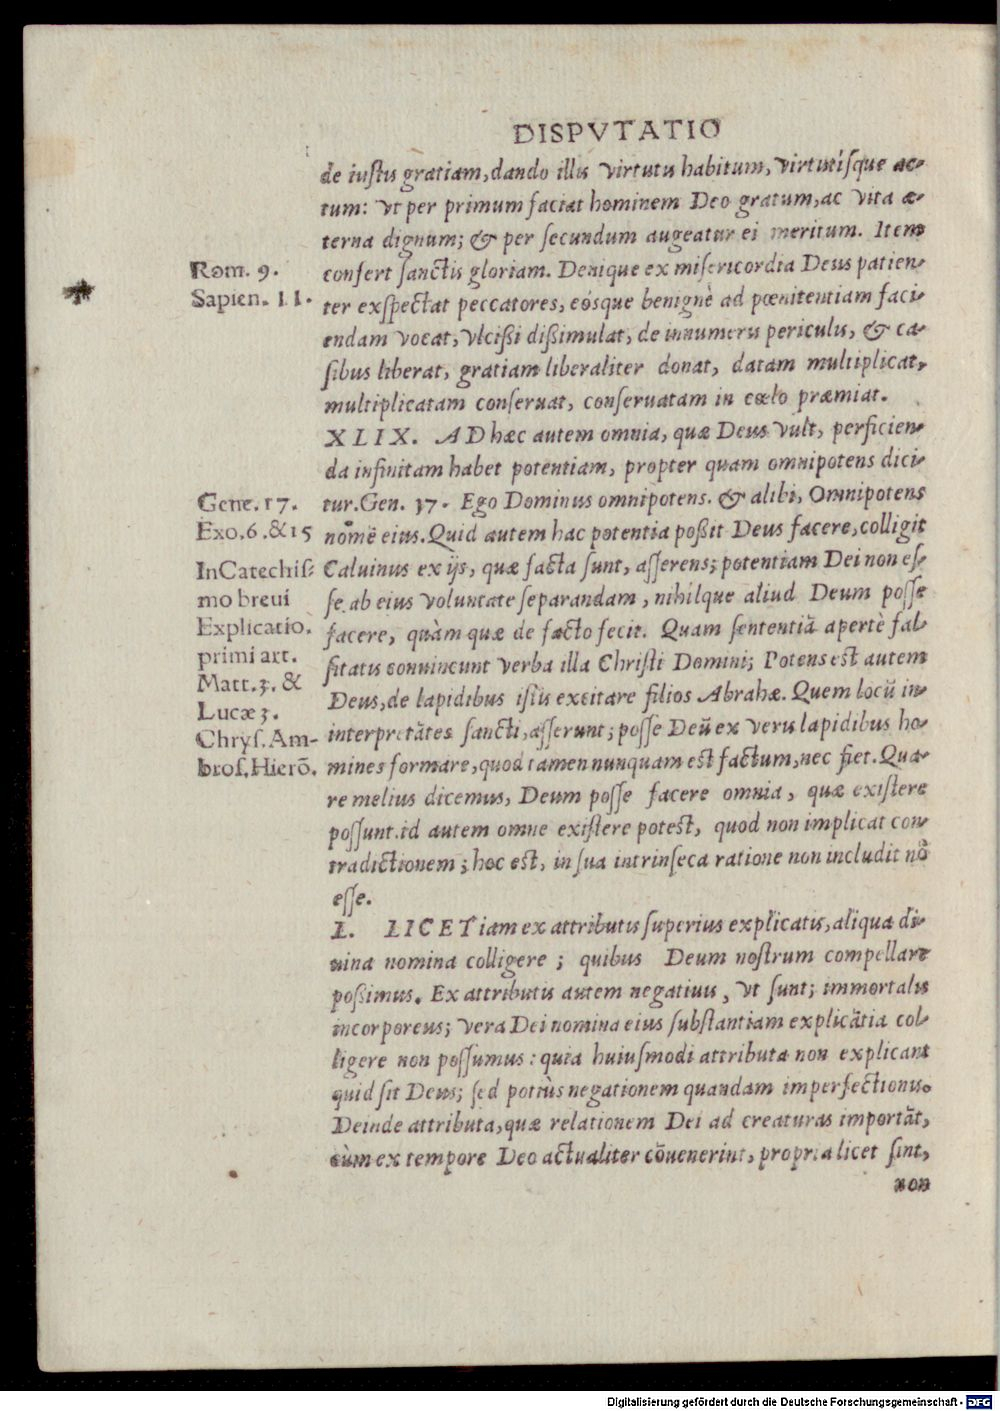 DISPVTATIO
de iustis gratiam, dando illis virtutis habitum, virtutísque ac-
tum: vt per primum faciat hominem Deo gratum, ac vita æ-
terna dignum; & per secundum augeatur ei meritum. Item
Rom. 9.
confert sanctis gloriam. Denique ex misericordia Deus patien-
Sapien. 11.
ter exspectat peccatores, eósque benignè ad pœnitentiam faci-
endam vocat, vlcißi dißimulat, de innumeris periculis, & ca-
sibus liberat, gratiam liberaliter donat, datam multiplicat,
multiplicatam conseruat, conseruatam in cœlo præmiat.
XLIX. AD hæc autem omnia, quæ Deus vult, perficien-
da infinitam habet potentiam, propter quam omnipotens dici-
Gene. 17.
tur. Gen. 17. Ego Dominus omnipotens. & alibi, Omnipotens
Exo. 6. & 15
nomē eius. Quid autem hac potentia poßit Deus facere, colligit
In Catechis-
Caluinus ex ijs, quæ facta sunt, asserens; potentiam Dei non es-
mo breui
se ab eius voluntate separandam, nihilque aliud Deum posse
Explicatio.
facere, quàm quæ de facto fecit. Quam sententiā apertè fal-
primi art.
sitatis conuincunt verba illa Christi Domini; Potens est autem
Matt. 3. &
Deus, de lapidibus istis excitare filios Abrahæ. Quem locū in-
Lucæ 3.
interpretātes sancti, asserunt; posse Deū ex veris lapidibus ho-
Chrys. Am-
mines formare, quod tamen nunquam est factum, nec fiet. Qua-
bros. Hierō.
re melius dicemus, Deum posse facere omnia, quæ existere
possunt. id autem omne existere potest, quod non implicat con-
tradictionem; hoc est, in sua intrinseca ratione non includit nō
esse.
L. LICET iam ex attributis superius explicatis, aliqua di-
uina nomina colligere; quibus Deum nostrum compellare
poßimus. Ex attributis autem negatiuis, vt sunt; immortalis
incorporeus; vera Dei nomina eius substantiam explicātia col-
ligere non possumus: quia huiusmodi attributa non explicant
quid sit Deus; sed potiùs negationem quandam imperfectionis.
Deinde attributa, quæ relationem Dei ad creaturas importāt,
cùm ex tempore Deo actualiter cōuenerint, propria licet sint,
non
Digitalisierung gefördert durch die Deutsche Forschungsgemeinschaft - DFG